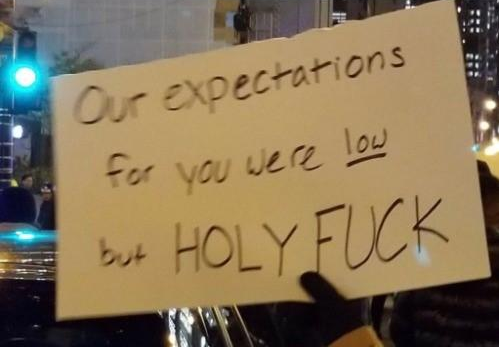 Our expectations
for you were low
but HOLY FUCK